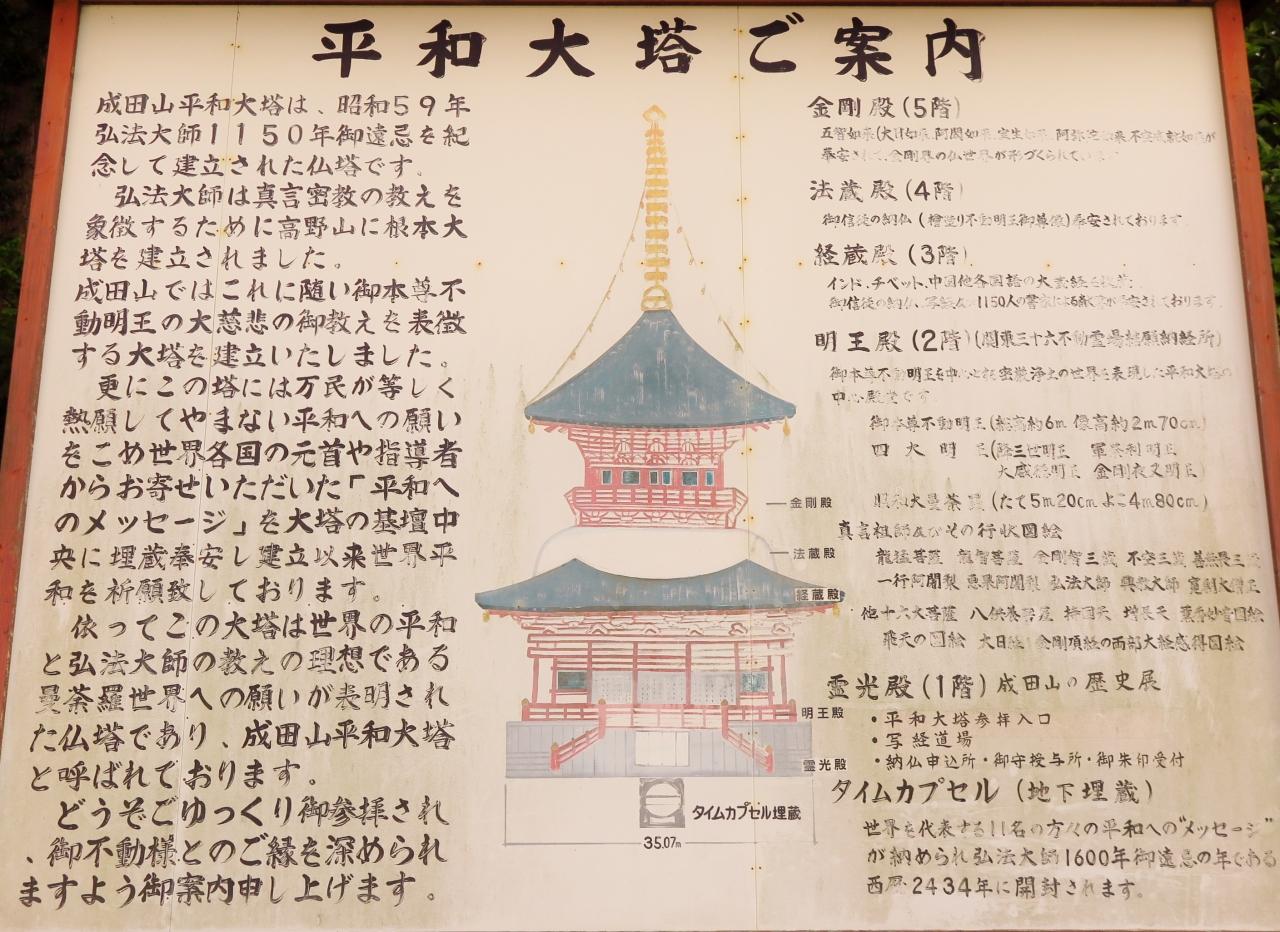 平和大塔ご案内
成田山平和大塔は、昭和59年
弘法大師1150年御遠忌を紀
念して建立された仏塔です。
弘法大師は真言密教の教えを
象徴するために高野山に根本大
塔を建立されました。
成田山ではこれに随い御本尊不
動明王の大慈悲の御教えを表徴
する大塔を建立いたしました。
更にこの塔には万民が等しく
熱願してやまない平和への願い
をこめ世界各国の元首や指導者
からお寄せいただいた「平和へ
のメッセージ」を大塔の基壇中
央に埋蔵奉安し建立以来世界平
和を祈願致しております。
依ってこの大塔は世界の平和
と弘法大師の教えの理想である
曼荼羅世界への願いが表明され
た仏塔であり、成田山平和大塔
と呼ばれております。
どうぞごゆっくり御参拝され
、御不動様とのご縁を深められ
ますよう御案内申し上げます。
金剛殿
法蔵殿
経蔵殿
明王殿
霊光殿
タイムカプセル埋蔵
35.07m
金剛殿(5階)
五智如来(大日如来、阿閦如来、宝生如来、阿弥陀如来、不空成就如来が
奉安されて、金剛界の仏世界が形づくられています
法蔵殿(4階)
御信徒の納仏(檜塗り不動明王御尊像)奉安されております
経蔵殿(3階)
インド、チベット、中国他各国語の大蔵経
御信徒の納仏、1150人の書家による奉安されております。
明王殿(2階)(関東三十六不動霊場結願納経所)
御本尊不動明王を中心とした密厳浄土の世界を表現した平和大塔の
中心殿堂です
御本尊不動明王(総高約6m 像高約2m70cm)
四大明王(降三世明王 軍荼利明王
大威徳明王 金剛夜叉明王
昭和大曼荼羅(たて5m20cmよこ4m80cm)
真言祖師及びその行状図絵
龍猛菩薩 龍智菩薩 金剛智三蔵 不空三蔵 善無畏三蔵
一行阿闍梨 恵果阿闍梨 弘法大師 興教大師 寛朝大僧正
他十六大菩薩 八供養菩薩 持国天 増長天 図絵
飛天の図絵 大日経 金剛頂経の両部大経感得図絵
霊光殿(1階)成田山の歴史展
・平和大塔参拝入口
・写経道場
・納仏申込所・御守授与所・御朱印受付
タイムカプセル(地下埋蔵)
世界を代表する11名の方々の平和への"メッセージ"
が納められ弘法大師1600年御遠忌の年である
西暦2434年に開封されます。